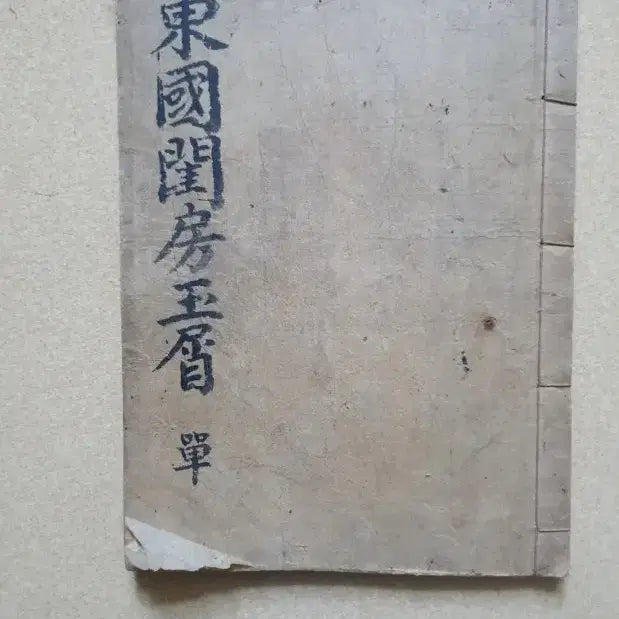 東國閨房玉屑
單